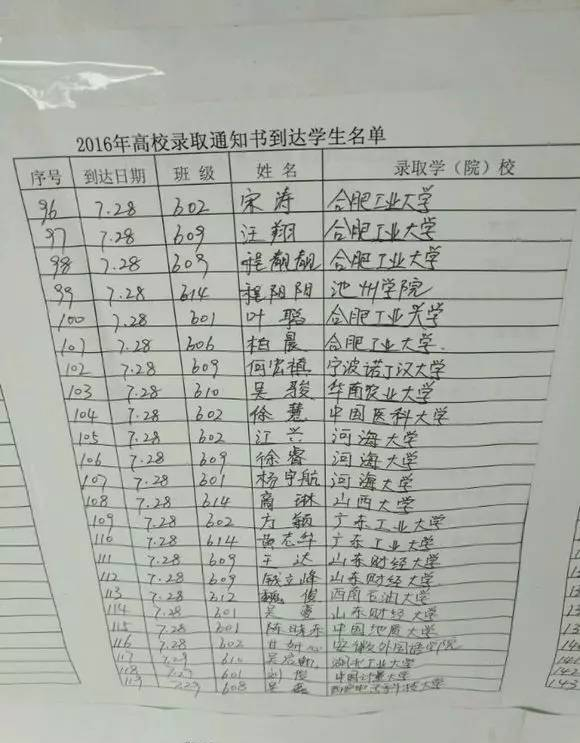 2016年高校录取通知书到达学生名单
序号 到达日期 班级 姓名 录取学（院）校
96 7.28 602 宋涛 合肥工业大学
97 7.28 609 汪翔 合肥工业大学
98 7.28 609 程飘飘 合肥工业大学
99 7.28 614 程阳阳 池州学院
100 7.28 601 叶聪 合肥工业大学
101 7.28 606 柏晨 合肥工业大学.
102 7.28 609 何宏稹 宁波诺丁汉大学
103 7.28 610 吴骏 华南农业大学
104 7.28 602 徐慧 中国医科大学
105 7.28 602 江兴 河海大学
106 7.28 609 徐睿 河海大学
107 7.28 601 杨宇航 河海大学
108 7.28 614 琳 山西大学
109 7.28 602 方颖 广东工业大学
110 7.28 614 黄志华 广东工业大学
111 7.28 609 王达 山东财经大学
112 7.28 609 钱立峰 山东财经大学
113 7.28 612 魏俊 西南石油大学
114 7.28 601 吴 山东财经大学
115 7.28 601 陈晓东 中国地质大学
116 7.28 602 安徽外国语学院
117 7.29 610 湖北工业大学
118 7.29 601 刘俊 中国计量大学
119 7.29 608 吴 大学
141
142
143